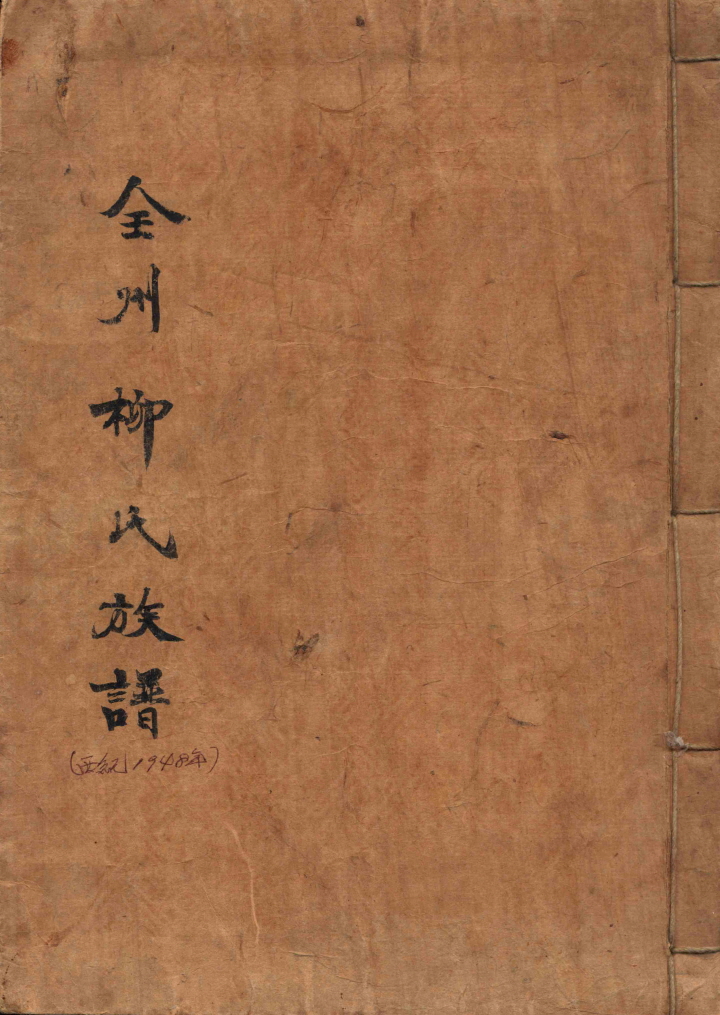 全州柳氏族譜
(西紀1948年)